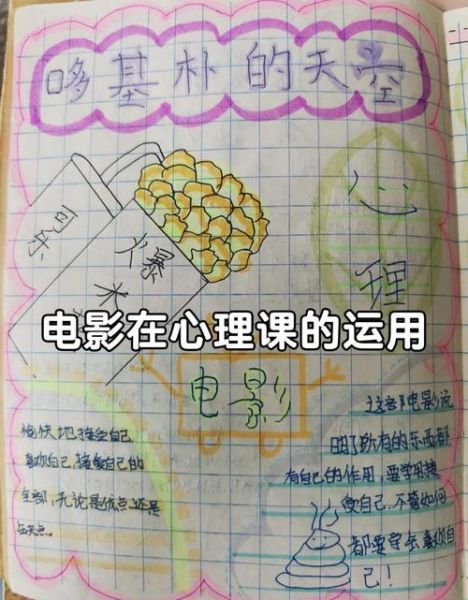 哆基朴的天空
可乐
爆米
理
电影在心理课的运用
电影
愉快地接全自己
喜欢自己,接受自己的
全部,无论是优点还是
缺点。
这部电影说
明了所有的东西都
有自己的作用,要学用接
受自己,不管如何
都要学会喜欢自
己!